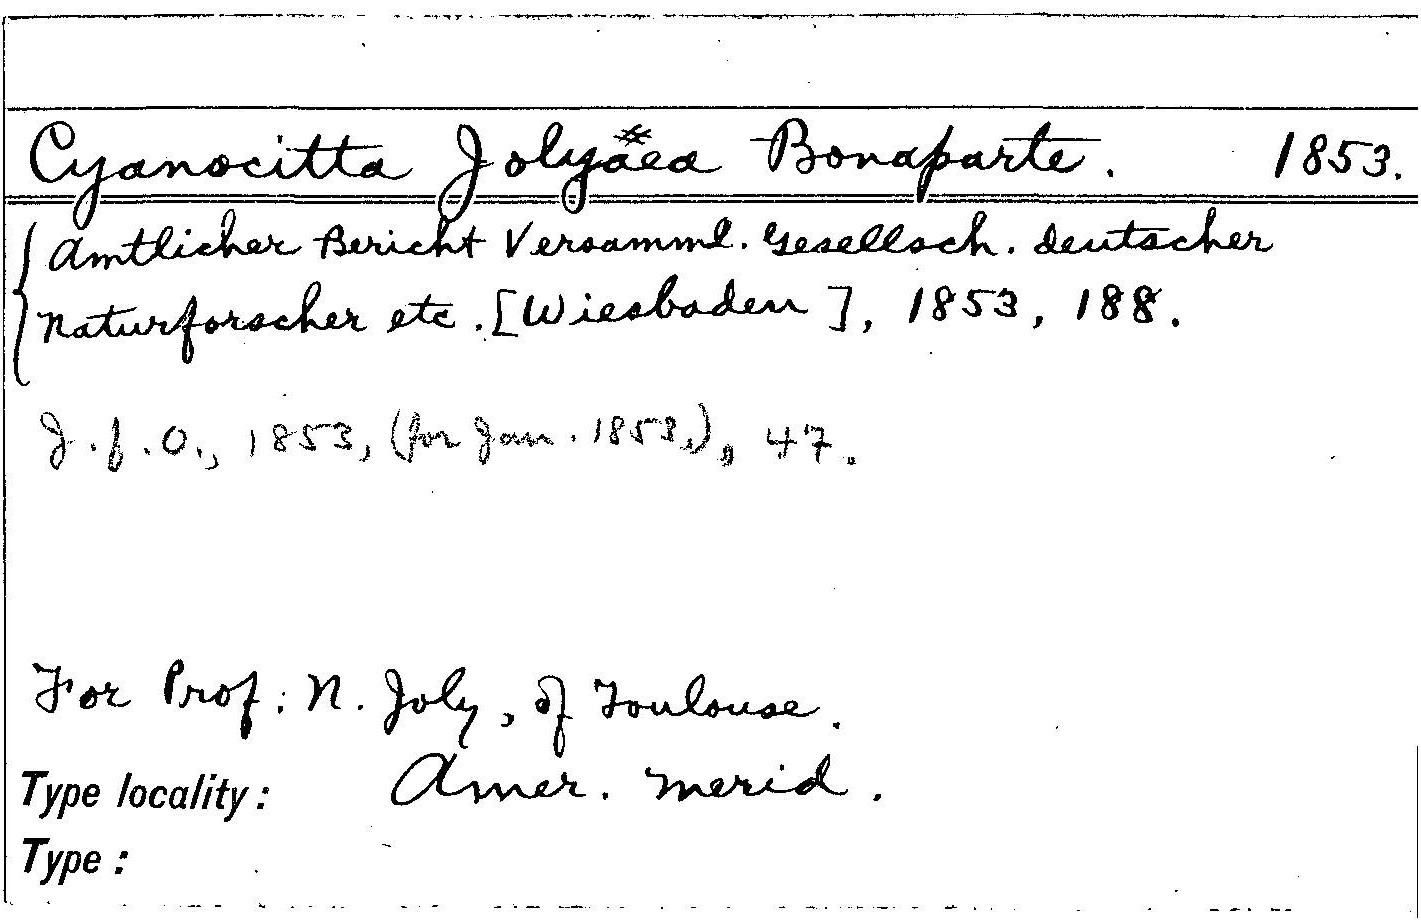 Cyanocitta Jolyäea Bonaparte. 1853.
Amtlicher Bericht Versamml. Gesellsch. deutscher
Naturforscher etc. [Wiesbaden], 1853, 188.
J.f.O., 1853, (for Jan. 1853,), 47.
For Prof: N. Joly, of Toulouse.
Type locality: Amer. merid.
Type: